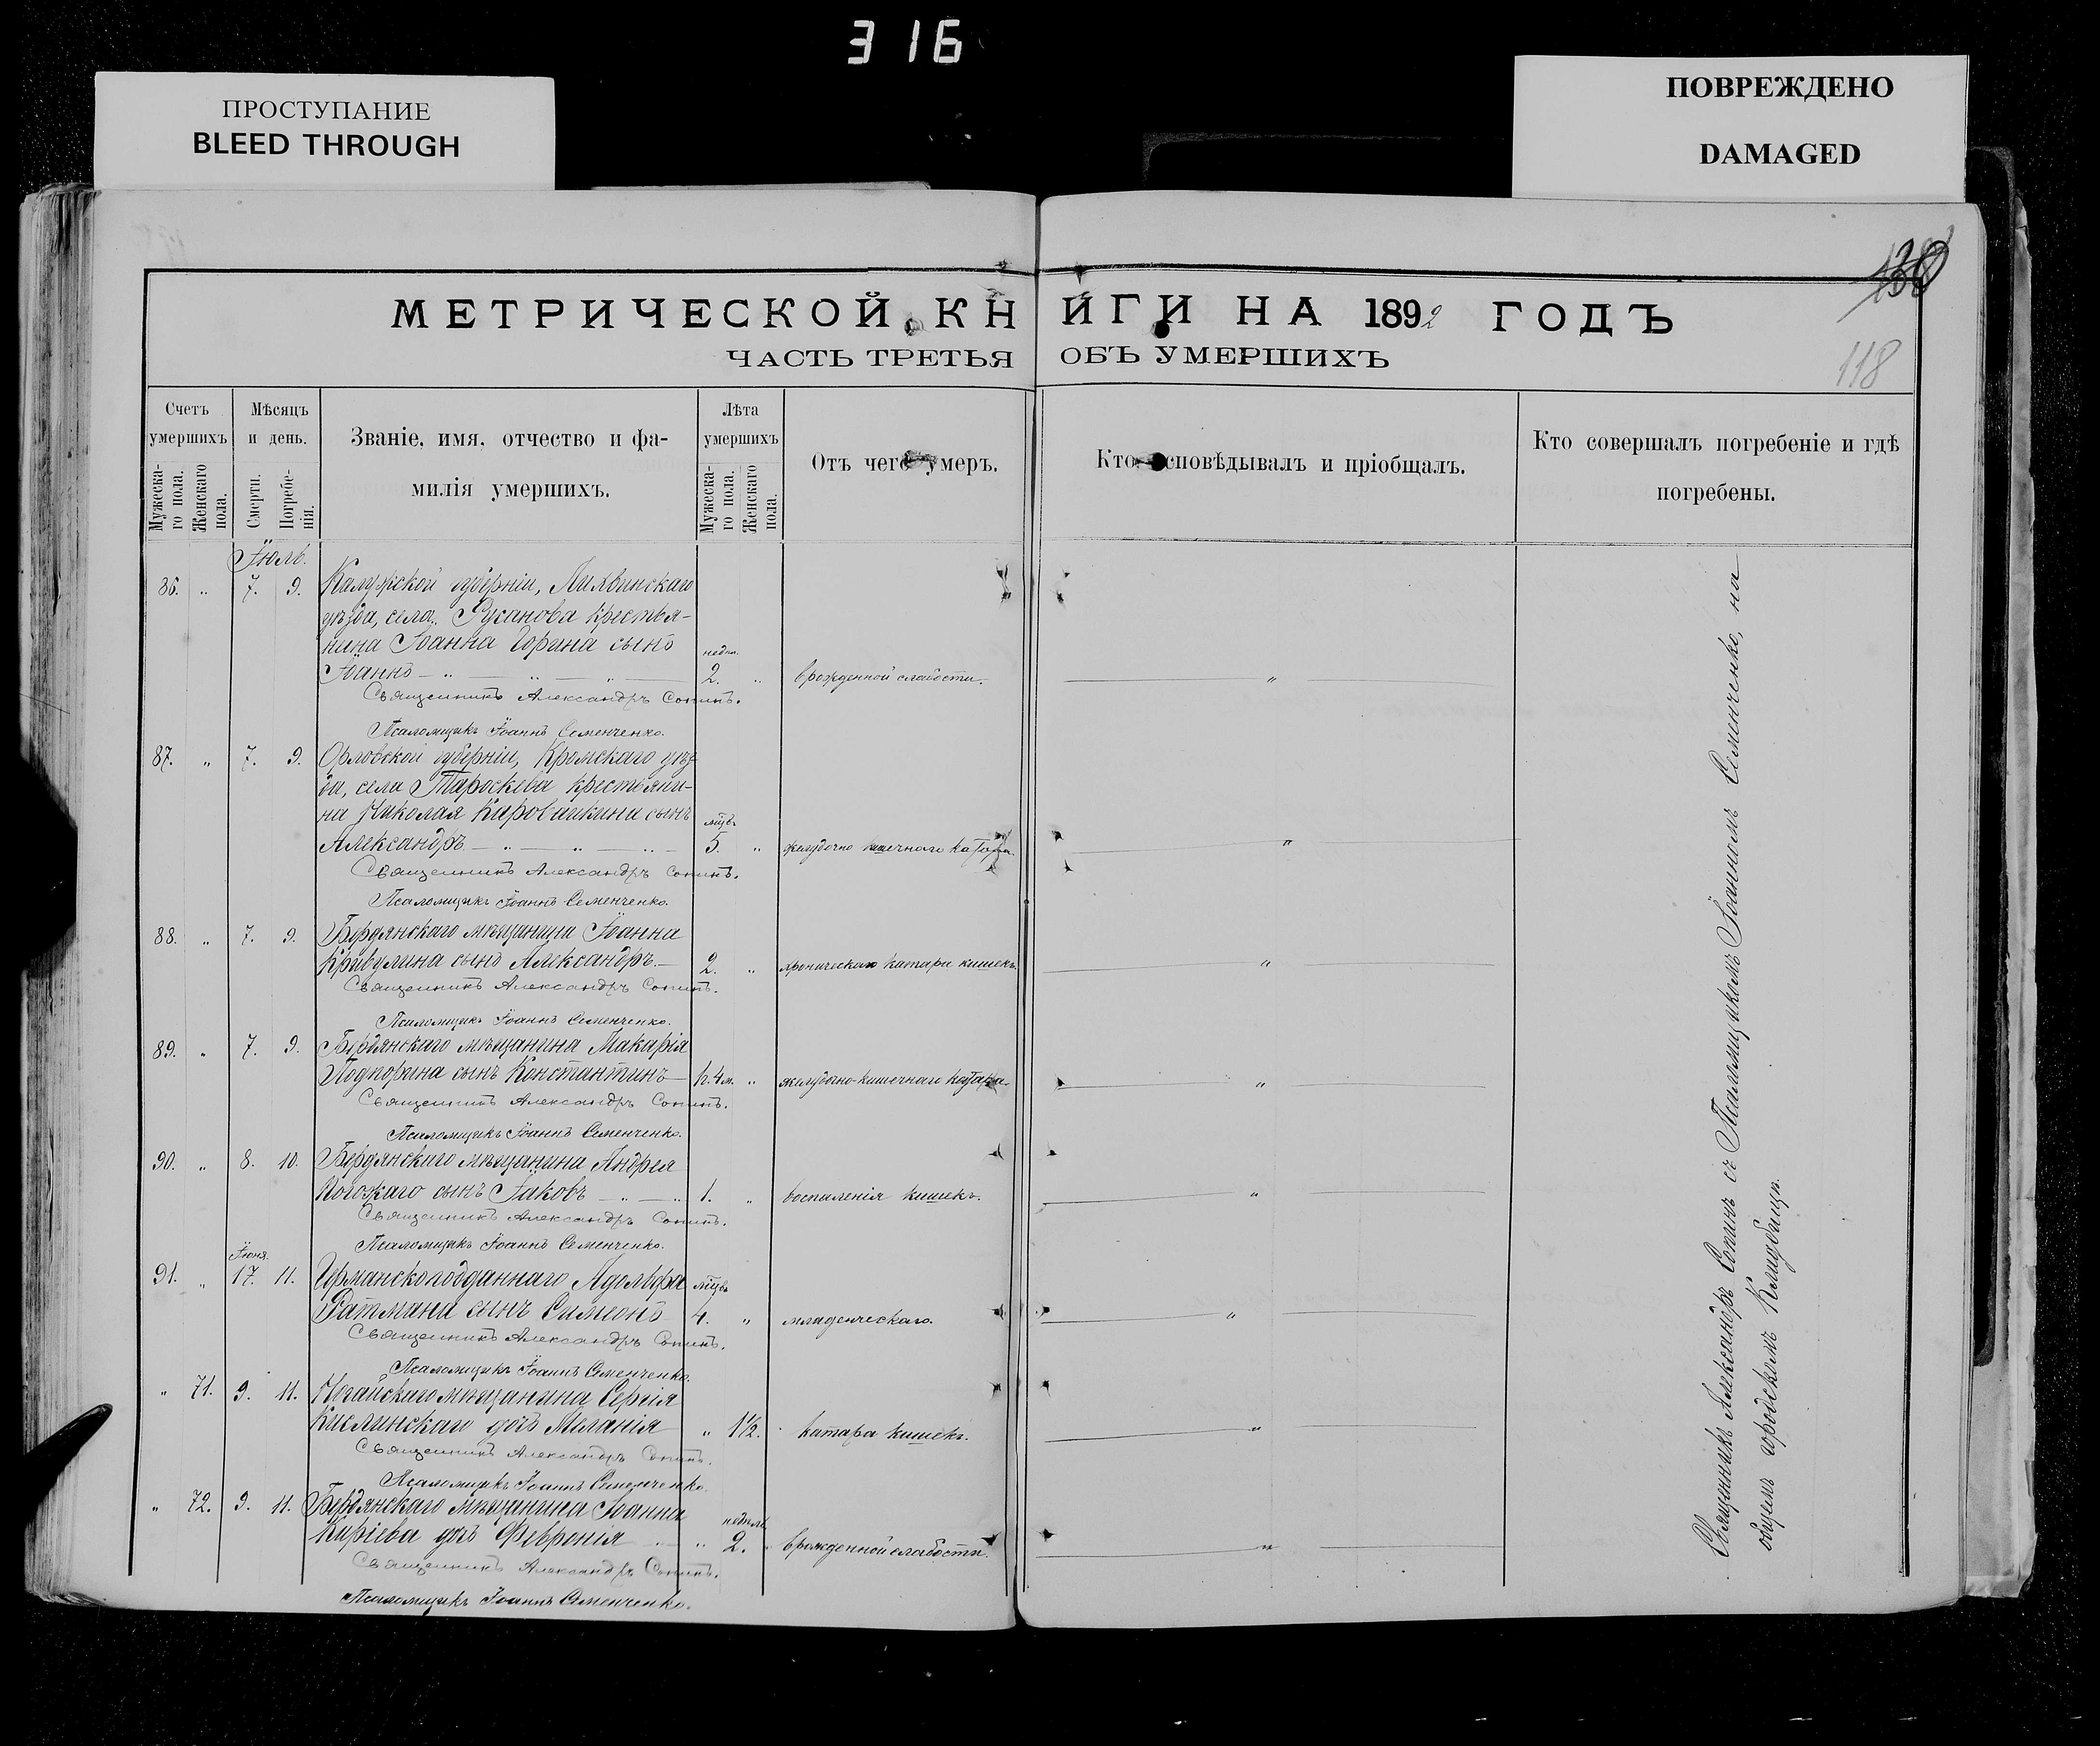 316
ПРОСТУПАНИЕ
BLEED THROUGH
ПОВРЕЖДЕНО
DAMAGED
118
МЕТРИЧЕСКОЙ КНИГИ НА 1892 ГОДЪ
ЧАСТЬ ТРЕТЬЯ ОБЪ УМЕРШИХЪ
Счетъ умершихъ
Мужеска-го пола.
Женскаго пола.
Мѣсяцъ и день.
Смерти.
Погребе-нія.
Званіе, имя, отчество и фа-
милія умершихъ.
Лѣта умершихъ
Мужеска-го пола.
Женскаго пола.
Отъ чего умеръ.
Кто исповѣдывалъ и пріобщалъ.
Кто совершалъ погребеніе и гдѣ
погребены.
Іюль.
86. " 7. 9. Калужской губерніи, Лихвинскаго
уѣзда, села Русанова крестья-
нина Іоанна Горина сынъ
недѣл.
Іоаннъ 2. " врожденной слабости. "
Священникъ Александръ Сопинъ.
Псаломщикъ Іоаннъ Семенченко.
87. " 7. 9. Орловской губерніи, Кромскаго уѣз-
да, села Тароскева крестьяни-
на Николая Каровайкина сынъ мцѣв
Александръ 5. " желудочно кишечнаго катара. "
Священникъ Александръ Сопинъ.
Псаломщикъ Іоаннъ Семенченко.
88. " 7. 9. Бердянскаго мѣщанина Іоанна
Кривулина сынъ Александръ. 2. " хроническаго катара кишекъ. "
Священникъ Александръ Сопинъ.
Псаломщикъ Іоаннъ Семенченко.
89. " 7. 9. Бердянскаго мѣщанина Макарія
Подпорина сынъ Константинъ 4 м. " желудочно-кишечнаго катара. "
Священникъ Александръ Сопинъ.
Псаломщикъ Іоаннъ Семенченко.
90. " 8. 10. Бердянскаго мѣщанина Андрея
Когожаго сынъ Іаковъ 1. " воспаленія кишекъ. "
Священникъ Александръ Сопинъ.
Псаломщикъ Іоаннъ Семенченко.
Іюня.
91. " 17. 11. Германскоподданнаго Адольфа мцѣв
Ратмана сынъ Симеонъ 4. " младенческаго. "
Священникъ Александръ Сопинъ.
Псаломщикъ Іоаннъ Семенченко.
" 71. 9. 11. Ногайскаго мѣщанина Сергія
Кислинскаго дочь Меланія " 1½. катара кишекъ. "
Священникъ Александръ Сопинъ.
Псаломщикъ Іоаннъ Семенченко.
" 72. 9. 11. Бердянскаго мѣщанина Іоанна
недѣль
Киріева дочь Февронія " 2. врожденной слабости. "
Священникъ Александръ Сопинъ.
Псаломщикъ Іоаннъ Семенченко.
Священникъ Александръ Сопинъ съ Псаломщикомъ Іоанномъ Семенченко, на
общемъ городскомъ кладбищѣ.